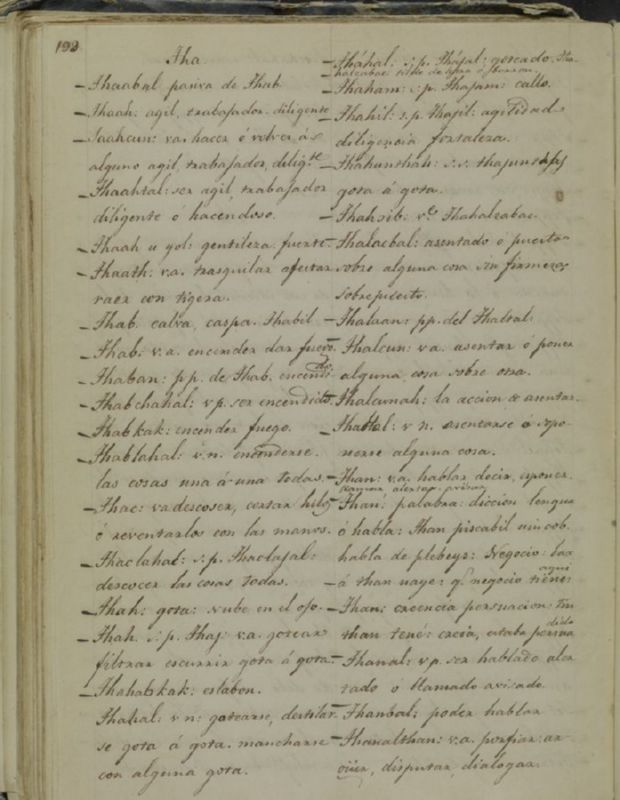 192
Tha.
—Thaabal pasiva de Thab.
—Thaah: agil, trabajador. diligente
—Thaahcun: va. hacer ó volver á
alguno agil, trabajador, diligte
—Thaahtal: ser agil, trabajador
diligente ó hacendoso.
—Thaah u yol: gentileza. fuerte
—Thaath: v.a. trasquilar afeitar
raer con tigera.
—Thab. calva, caspa. Thabil
—Thab: v.a. encender dar fuego.
—Thaban: pp. de Thab. encendido.
—Thabchahal: vp. ser encendido.
—Thabkak: encender fuego.
—Thablahal: v.n. encenderse.
las cosas una á una todas.
—Thac: va descoser, cortar hilo
ó reventarlos con las manos.
—Thaclahal: s.p. Thaclajal:
descocer las cosas todas.
—Thah: gota: nube en el ojo.
—Thah. s.p. Thaj: v.a. gotear
filtrar escurrir gota á gota.
—Thahabkak: eslabon.
Thahal: v n: gotearse, destilar
se gota á gota. mancharse
con alguna gota.
—Tháhal: s.p. Thájal: goteado. Tha
—Thaham: s.p. Thajam: callo.
—Thahil: s.p. Thajil: agilidad
diligencia fortaleza.
—Thahunthah: s.s. thajunthaj
gota á gota.
—Thahsib. ve Thahalzabac.
—Thalacbal: asentado ó puesto
sobre alguna cosa sin firmeza
sobrepuesto.
—Thalaan: pp. del Thaltal.
—Thalcun: va. asentar ó poner
alguna cosa sobre otra.
—Thalcunah: la accion de asentar.
—Thaltal: v n. asentarse ó sopo-
nerse alguna cosa.
—Than: v.a. hablar decir, iponer.
llamar alertar. avisar
—Than: palabra: diccion lengua
ó habla: Than piscabil uincob.
habla de plebeyos: Negocio: baa
á than uaye: q.e negocio tienes aqui
—Than: creencia persuacion: Tin
than tené: creia, estaba persuadido
—Thanal: vp. ser hablado aler
tado ó llamado avisado
—Thanbal: poder hablar
—Thanalthan: v.a. porfiar: ar-
güir, disputar, dialogar.